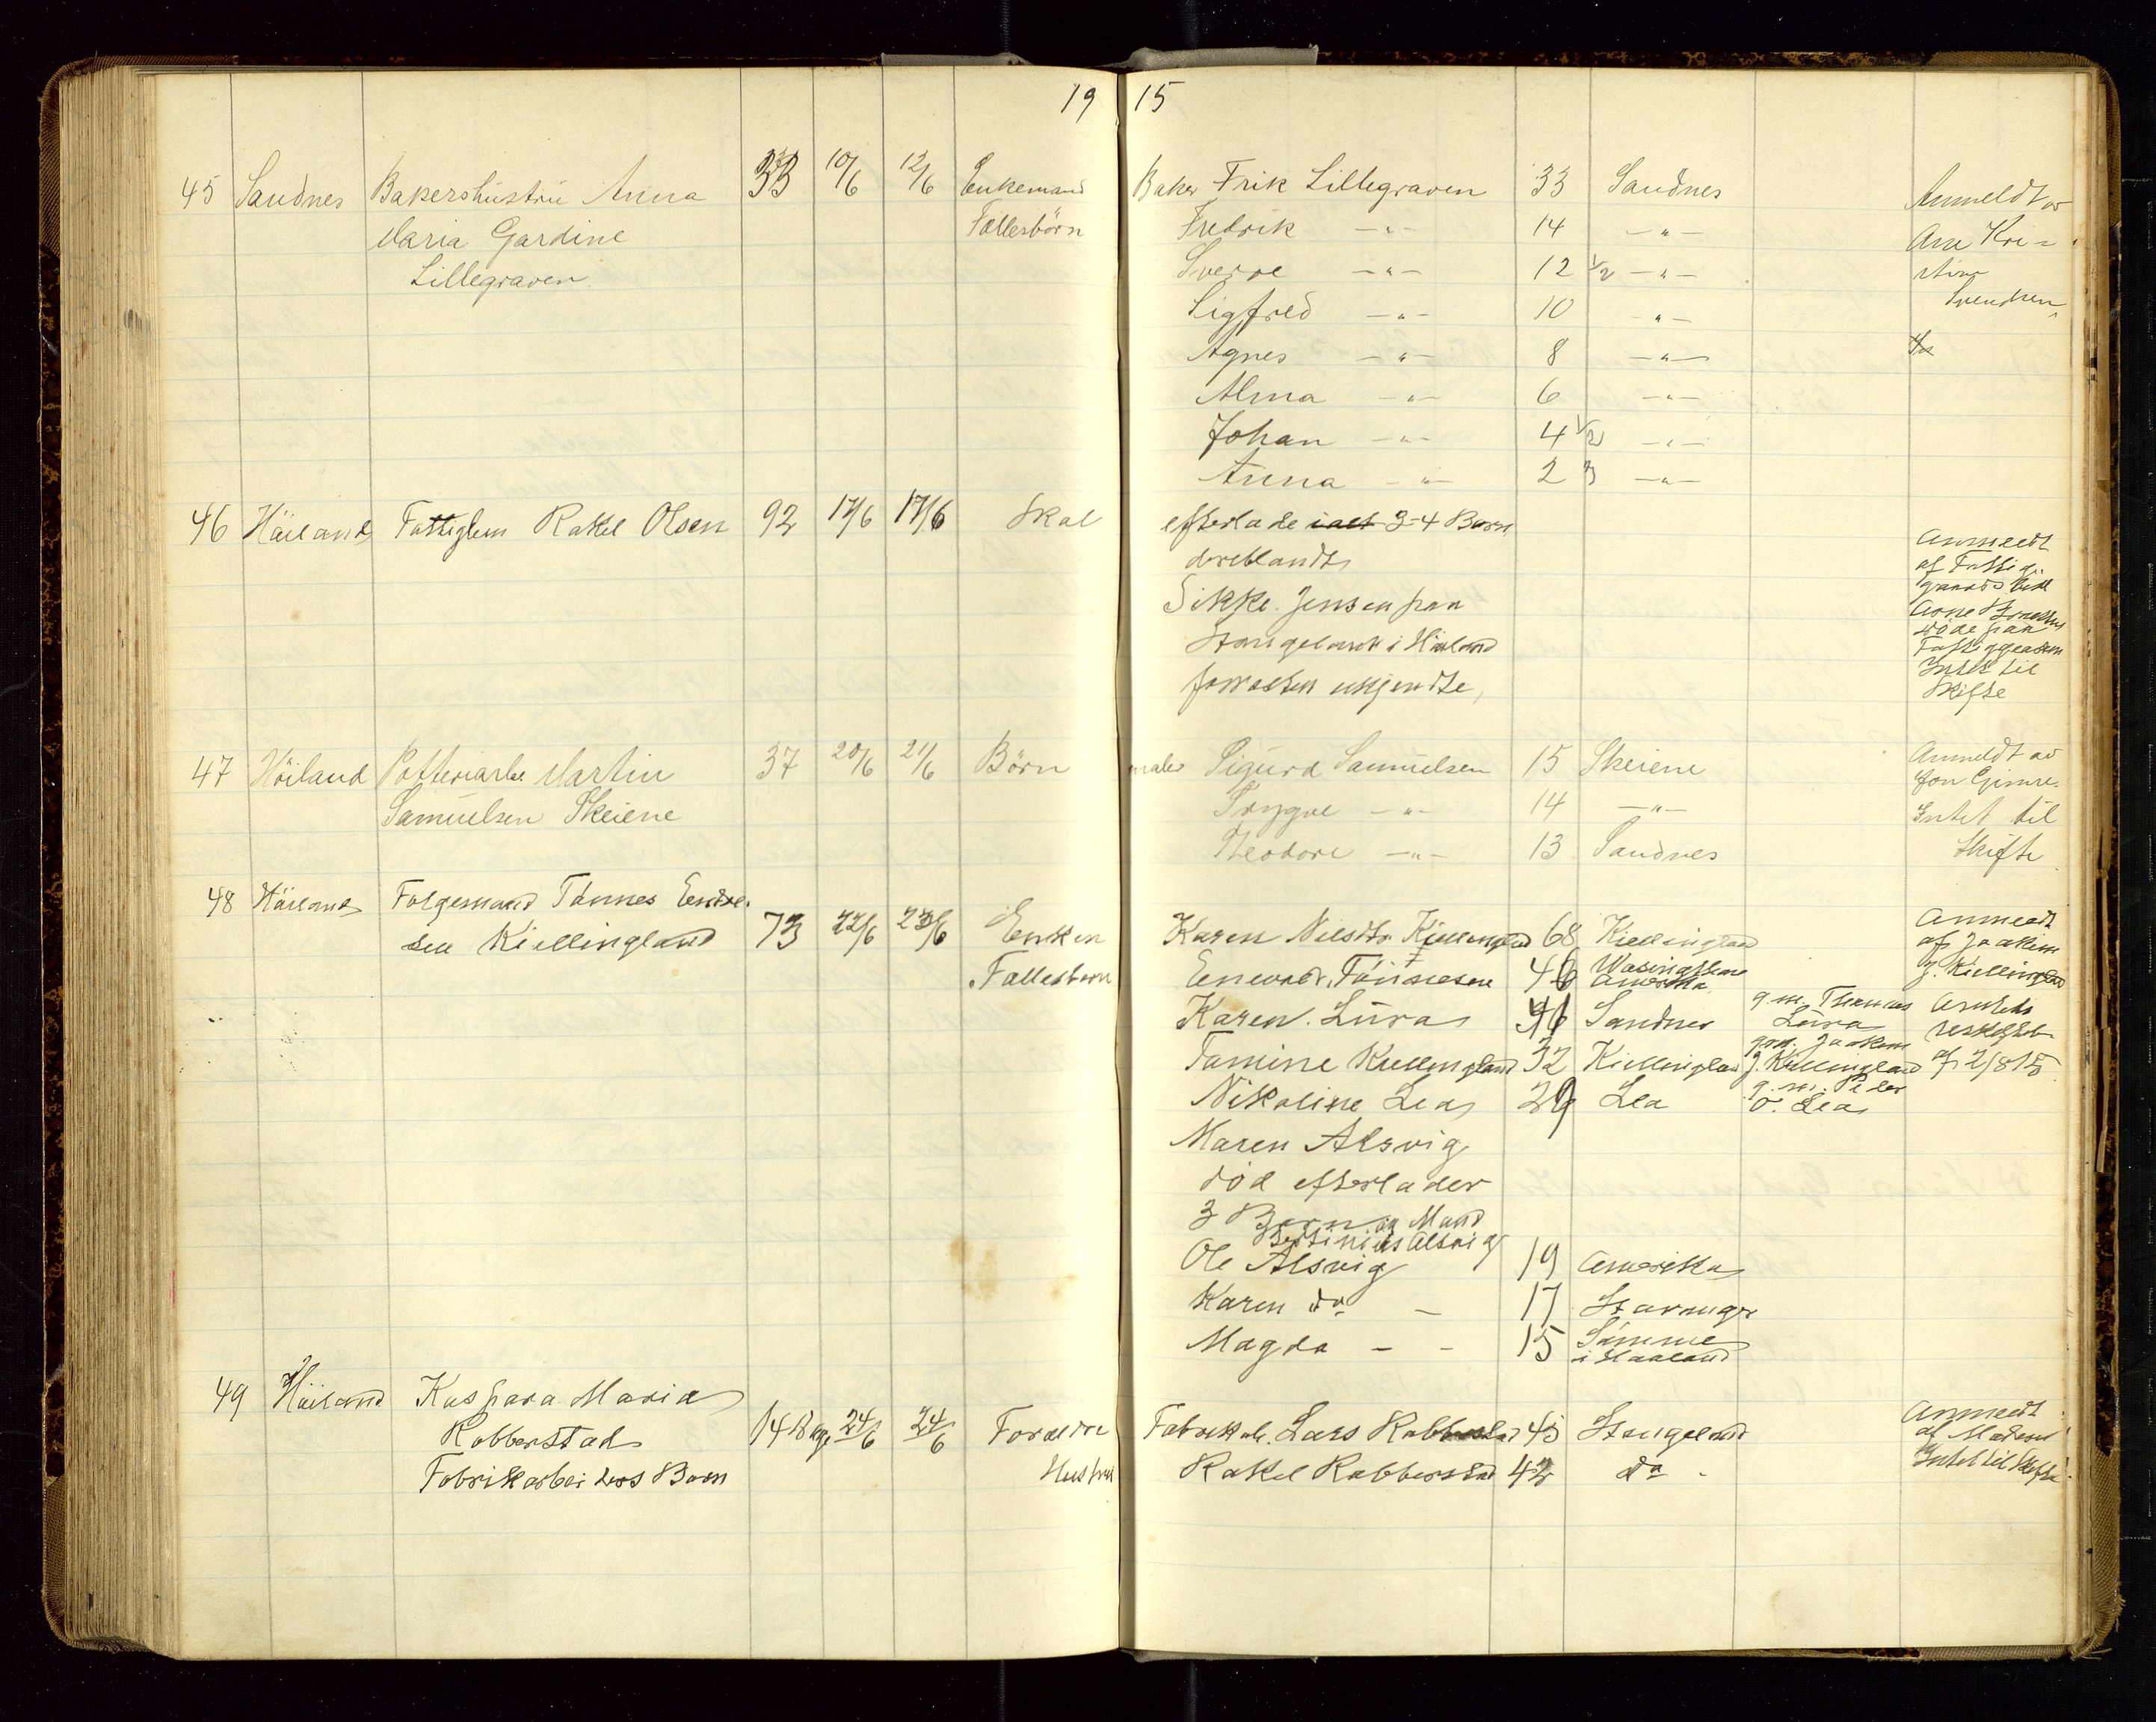 19 15
45 Sandnes Bakershustru Anna 33 10/6 12/6 Enkemand Baker Frik Lillegraven 33 Sandnes Anmeldt av
Maria Gardine Fællesbörn Fredrik —"— 14 —"— Ane Kri-
Lillegraven Sverre —"— 12 1/2 —"— stine
Sigfred —"— 10 —"— Svendsen
Agnes —"— 8 —"—
Alma —"— 6 —"—
Johan —"— 4 1/2 —"—
Anna —"— 2 —"—
46 Höiland Fattiglem Rakel Olsen 92 17/6 17/6 Skal efterlade ialt 3-4 Børn
deriblandt
Sikke Jensen paa
Stangeland i Höiland
forresten ukjendte,
Anmeldt
af Fattig-
Arne
döde paa
Intet til
Skifte
47 Höiland Potteriarb. Martin 37 20/6 21/6 Börn maler Sigurd Samuelsen 15 Skeiene Anmeldt av
Samuelsen Skeiene Trygve —"— 14 —"— Jon Gimre.
Intet til
Theodore —"— 13 Sandnes Skifte
48 Höiland Folgemand Tönnes Endre-
sen Kiellingland 73 22/6 23/6 Enken Karen Nilsdtr. Kiellingland 68 Kiellingland Anmeldt
af Joakim
J. Kiellingland
Fællesbørn Enevald Tönnesen 46 Amerika
Karen Lura Sandnes g. m. Thomas
Lura
Tamine Kiellingland 32 Kiellingland g. m. Joakim
J. Kiellingland af 2/8 15
Nikoline Lea 29 Lea g. m. Peder
O. Lea
Maren Alsvig
död efterlader
3 Børn og Mand
Bertinius Alsvig
Ole Alsvig 19 Amerika
Karen do — 17 Stavanger
Magda — — 15 Sömme
i Haaland
49 Höiland Kaspara Maria
Robberstad 14 Dage 24/6 24/6 Forældre Fabrikarb. Lars Robberstad 45 Stangeland Anmeldt
af Moderen
Fabrikarbeiders Barn Hustru Rakel Robberstad 42 do Intet til Skifte